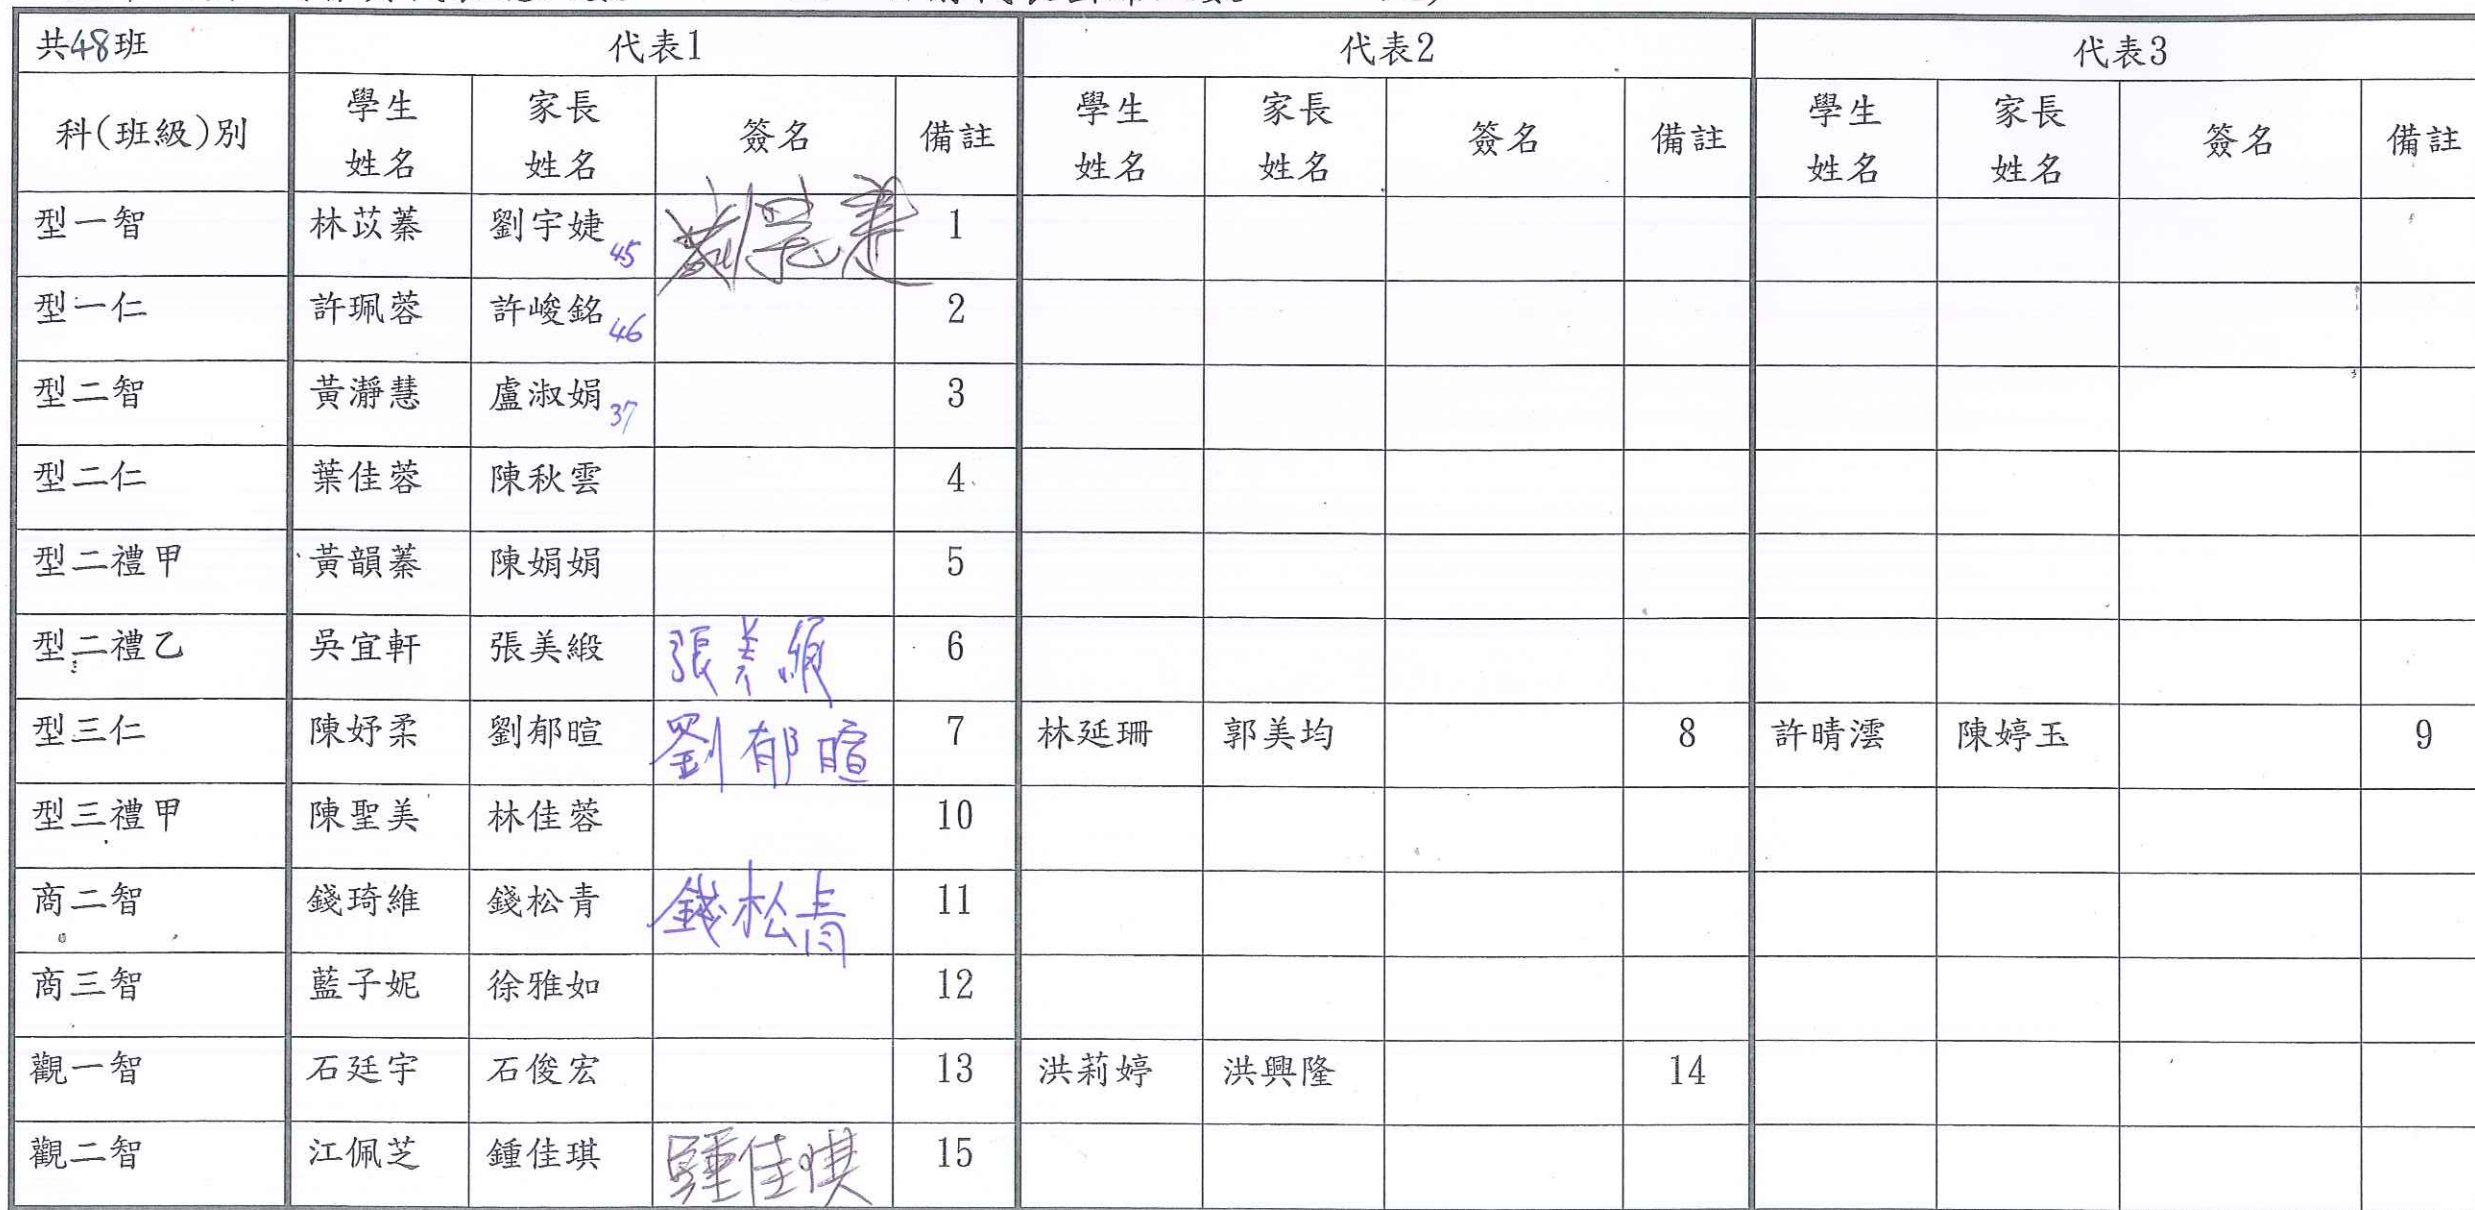 共48班 代表1 代表2 代表3
科(班級)別 學生姓名 家長姓名 簽名 備註 學生姓名 家長姓名 簽名 備註 學生姓名 家長姓名 簽名 備註
型一智 林苡蓁 劉宇婕 45 1
型一仁 許珮蓉 許峻銘 46 2
型二智 黃瀞慧 盧淑娟 37 3
型二仁 葉佳蓉 陳秋雲 4
型二禮甲 黃韻蓁 陳娟娟 5
型二禮乙 吳宜軒 張美緞 張美緞 6
型三仁 陳妤柔 劉郁暄 劉郁暄 7 林延珊 郭美均 8 許晴澐 陳婷玉 9
型三禮甲 陳聖美 林佳蓉 10
商二智 錢琦維 錢松青 錢松青 11
商三智 藍子妮 徐雅如 12
觀一智 石廷宇 石俊宏 13 洪莉婷 洪興隆 14
觀二智 江佩芝 鍾佳琪 鍾佳琪 15